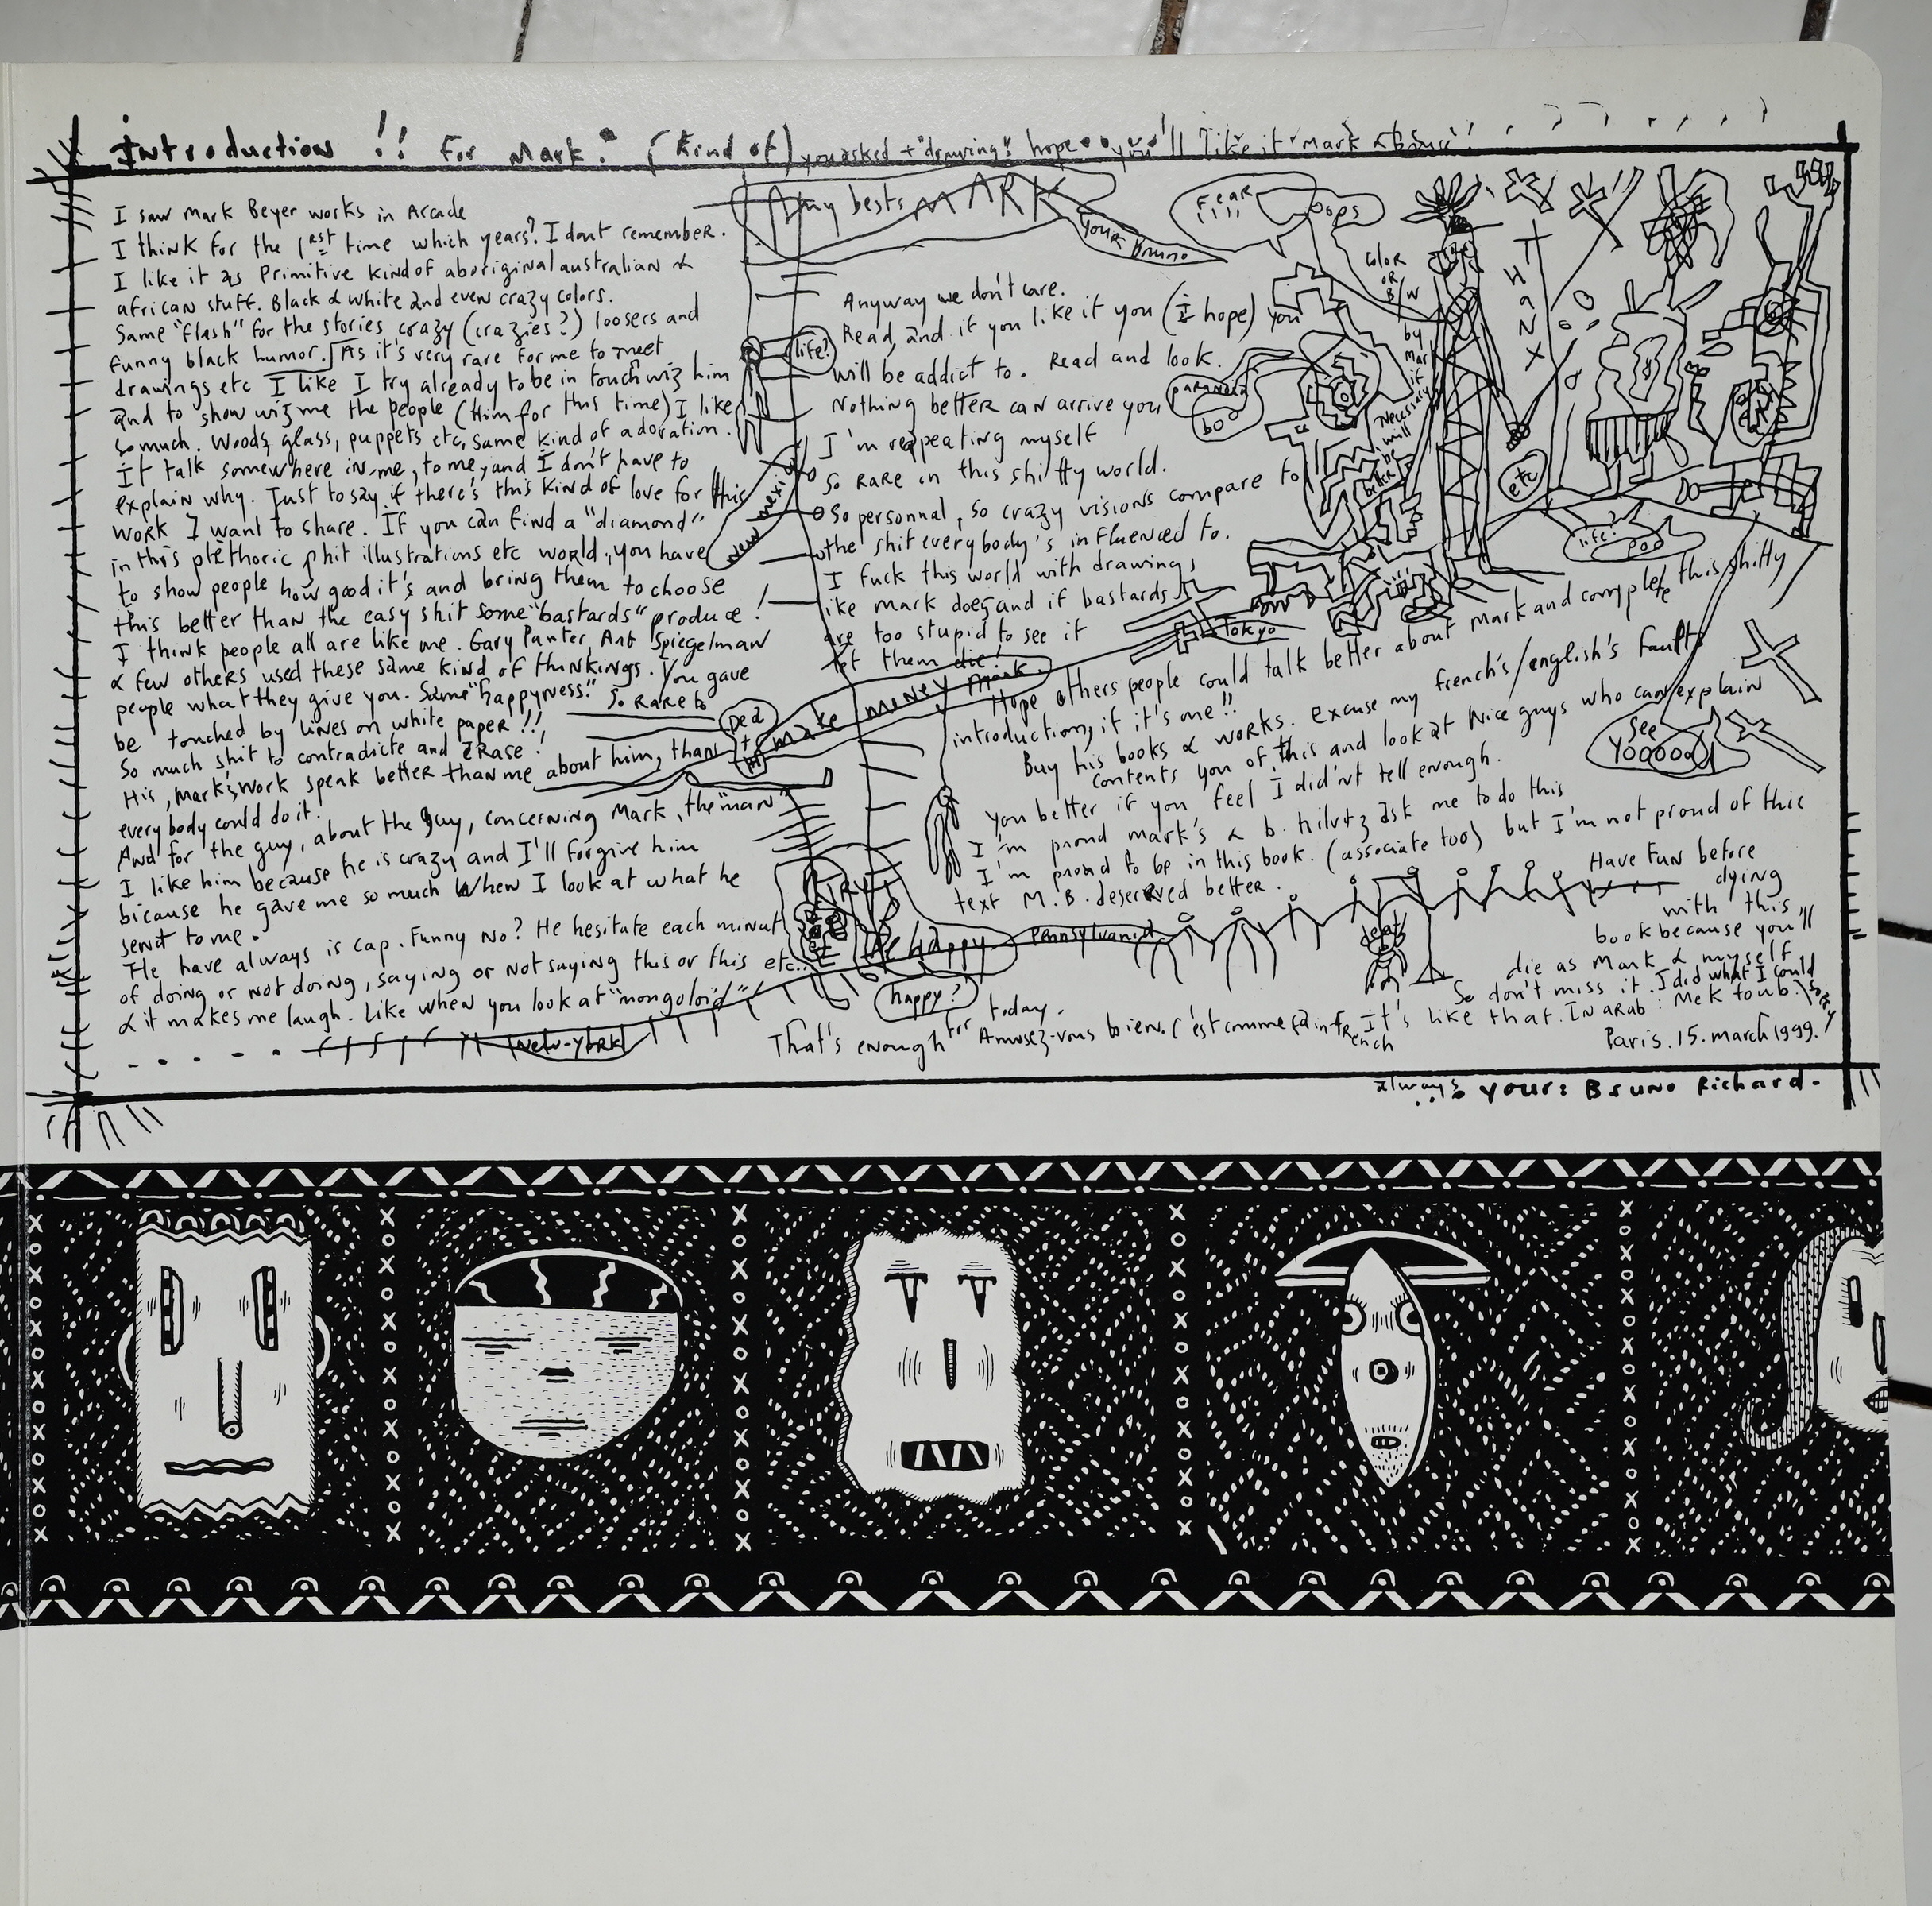 Introduction !! For Mark. (Kind of) you asked + "drawing". hope you'll like it Mark
I saw Mark Beyer works in Arcade
I think for the 1rst time which years? I dont remember.
I like it as Primitive kind of aboriginal australian &
african stuff. Black & white and even crazy colors.
Same "flash" for the stories crazy (crazies?) loosers and
funny black humor. As it's very rare for me to meet
drawings etc I like I try already to be in touch wiz him
and to show wiz me the people (Him for this time) I like
so much. Woods, glass, puppets etc, same kind of adoration.
It talk somewhere in me, to me, and I don't have to
explain why. Just to say if there's this kind of love for this
work I want to share. If you can find a "diamond"
in this plethoric shit illustrations etc world, you have
to show people how good it's and bring them to choose
this better than the easy shit some "bastards" produce !
I think people all are like me. Gary Panter, Art Spiegelman
& few others used these same kind of thinkings. You gave
people what they give you. Same "happyness."
So rare to
be touched by lines on white paper !!!
So much shit to contradicte and erase !
His, Mark's, work speak better than me about him, than
every body could do it.
And for the guy, about the guy, concerning Mark, the "man"
I like him because he is crazy and I'll forgive him
bicause he gave me so much when I look at what he
send to me.
He have always is cap. Funny No? He hesitate each minut
of doing or not doing, saying or not saying this or this etc...
& it makes me laugh. Like when you look at "mongoloid"
New-York
My bests MARK
your Bruno
FEAR !!!!
oops
life?
New mexico
Anyway we don't care.
Read, and if you like it you (I hope) you
will be addict to. Read and look.
Nothing better can arrive you
I'm reapeating myself
So rare in this shitty world.
So personnal, so crazy visions compare to
the shit everybody's influenced to.
I fuck this world with drawings
like Mark does, and if bastards
are too stupid to see it
let them die!
paranoia
boo
color
or
B/W
by
Mark
if
Necessary
will
be
better
THANX
etc
life?
poo
Tokyo
make money Mark
Hope others people could talk better about Mark and complete this shitty
introduction, if it's me !!
Buy his books & works. Excuse my french's/english's faults
contents you of this and look at Nice guys who can explain
you better if you feel I did'nt tell enough.
I'm proud mark's & b. ask me to do this
I'm proud to be in this book. (associate too) but I'm not proud of this
text M.B. deserved better.
See
Yooooou
Be happy
Pennsylvania
happy?
death
Have Fun before
dying
with this
book because you'll
die as Mark & myself
So don't miss it. I did what I could
That's enough for today.
Amusez-vous bien. C'est comme ça in French It's like that. In arab: Mek toub. Sorry
Paris. 15. march 1999.
always yours Bruno Richard.